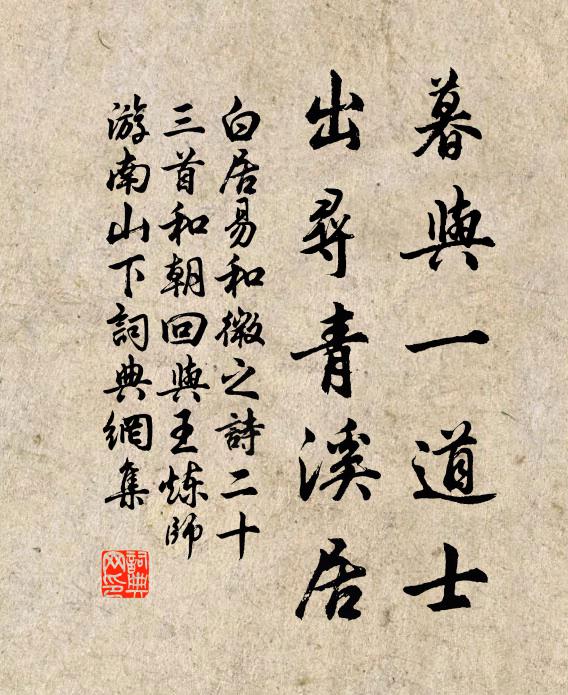 暮與一道士
出尋青溪居
白居易和微之詩二十
三首和朝回與王炼師
游南山下詞典網集
詞典網印